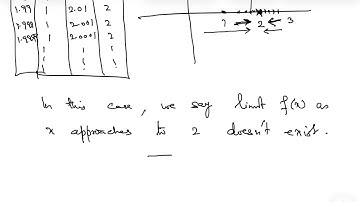 1.99 1 2.01 2
1.998 1 2.001 2
1.9998 1 2.0001 2
1 2 3
In this case, we say limit f(x) as
x approaches to 2 doesn't exist.